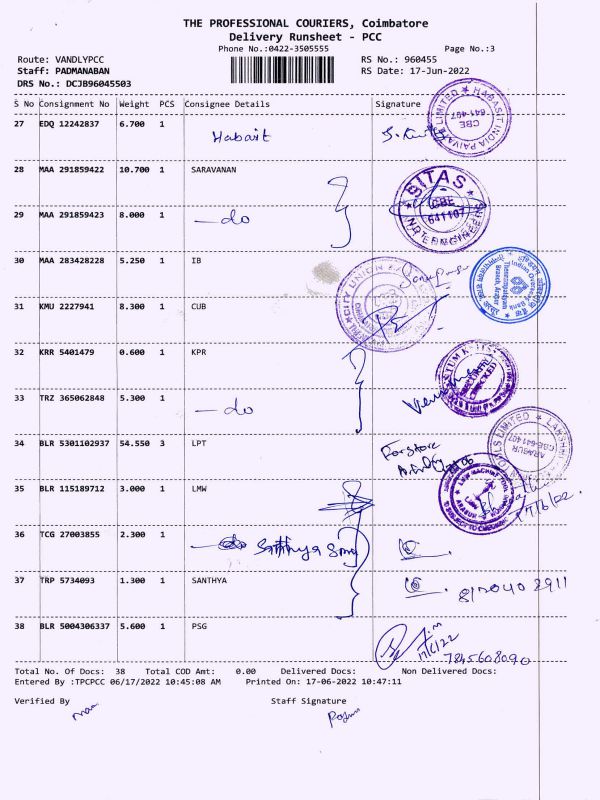 THE PROFESSIONAL COURIERS, Coimbatore
Delivery Runsheet - PCC
Phone No.:0422-3505555 Page No.:3
Route: VANDLYPCC RS No.: 960455
Staff: PADMANABAN RS Date: 17-Jun-2022
DRS No.: DCJB96045503
S No Consignment No Weight PCS Consignee Details Signature
27 EDQ 12242837 6.700 1 Habasit
HABASIT INDIA PAIVAT LIMITED
CBE
641 407
28 MAA 291859422 10.700 1 SARAVANAN
SITAS
CBE
641107
29 MAA 291859423 8.000 1 — do
30 MAA 283428228 5.250 1 IB
CITY UNION
Indian Overseas Bank
31 KMU 2227941 8.300 1 CUB
32 KRR 5401479 0.600 1 KPR
SECURITY
CHECKED
33 TRZ 365062848 5.300 1 — do
34 BLR 5301102937 54.550 3 LPT
For store
LIMITED
LAKSHMI
ARASUR
CBE-641 407
35 BLR 115189712 3.000 1 LMW
17/6/22.
36 TCG 27003855 2.300 1
37 TRP 5734093 1.300 1 SANTHYA
38 BLR 5004306337 5.600 1 PSG
17/6/22
7845608090
Total No. Of Docs: 38 Total COD Amt: 0.00 Delivered Docs: Non Delivered Docs:
Entered By :TPCPCC 06/17/2022 10:45:08 AM Printed On: 17-06-2022 10:47:11
Verified By Staff Signature